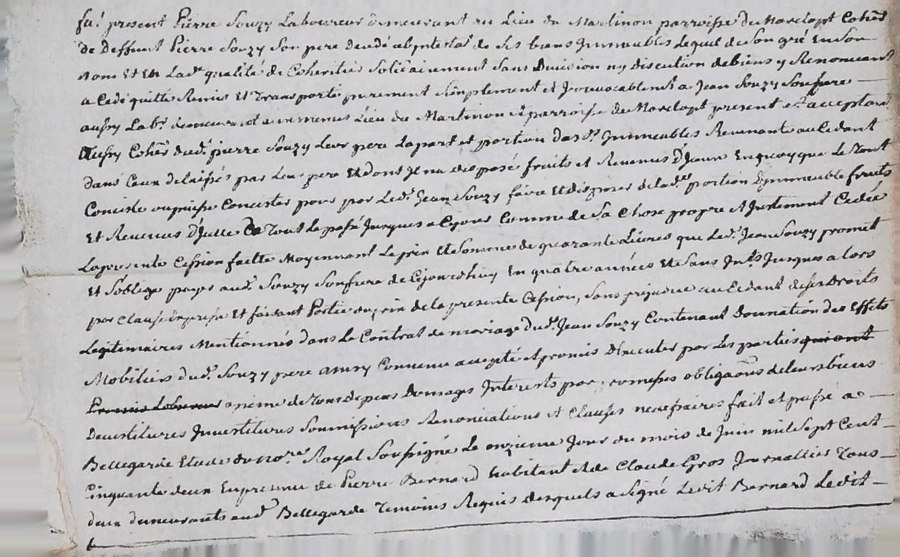 fut present Pierre Souzy Laboureur demeurant au Lieu du Martinon parroisse du Marclopt Coher
de deffunt Pierre Souzy Son pere decedé abintestat de Ses biens Immeubles Lequel de Son gré En Son
nom Et En Lad. qualité de Coheritier Solidairement Sans Division ny Discution de biens y Renonceant
a Cedé quitté Remis Et Transporté purement Simplement et Irrevocablement a Jean Souzy Son frere
aussy Lab. demeurant au memes Lieu du Martinon d. parroisse du Marclopt present et acceptant
Aussy Coher dud. pierre Souzy Leur pere La part et portion das d. Immeubles Revenante au Cedant
dans Ceux delaissés par Leur pere Et dont Il na disposé fruits et Revenus D'Iceux En quoy que Le Tout
Conciste ou puisse Concister pour par Led. Jean Souzy faire et disposer de lad. portion D'Immeuble fruits
Et Revenus D'Icelle de Tout Le passé Jusques a Ce jour Comme de Sa Chose propre et Justement Cedée
La presente Cession faitte Moyennant Le prix Et Somme de quarante Livres que Led. Jean Souzy promet
Et S'oblige payer aud. Souzy Son frere de Ce jourdhuy En quatre années Et Sans Int. Jusques a lors
par clause Expresse Et faisant Partie du prix de la presente Cession, Sans prejudice au Cedant de Ses Droits
Legitimaires Mentionnés dans le Contrat de mariage dud. Jean Souzy Contenant donnation des Effets
Mobiliers dud. Souzy pere ainsy Convenu accepté et promis D'Executer par Les parties qui ont
a peine de Tous depens Domages Interests par promesses obligaons de leurs biens
Devestitures Investitures Soumissions Renonciations Et Clauses necessaires fait et passé a
Bellegarde Etude du no.re Royal Soussigné Le onzieme Jour du mois de Juin mil Sept Cent
Cinquante deux En presence de Pierre Bernard habitant et de Claude Gros Journallier Tous
deux demeurants aud. Bellegarde Temoins Requis desquels a Signé Ledit Bernard Ledit